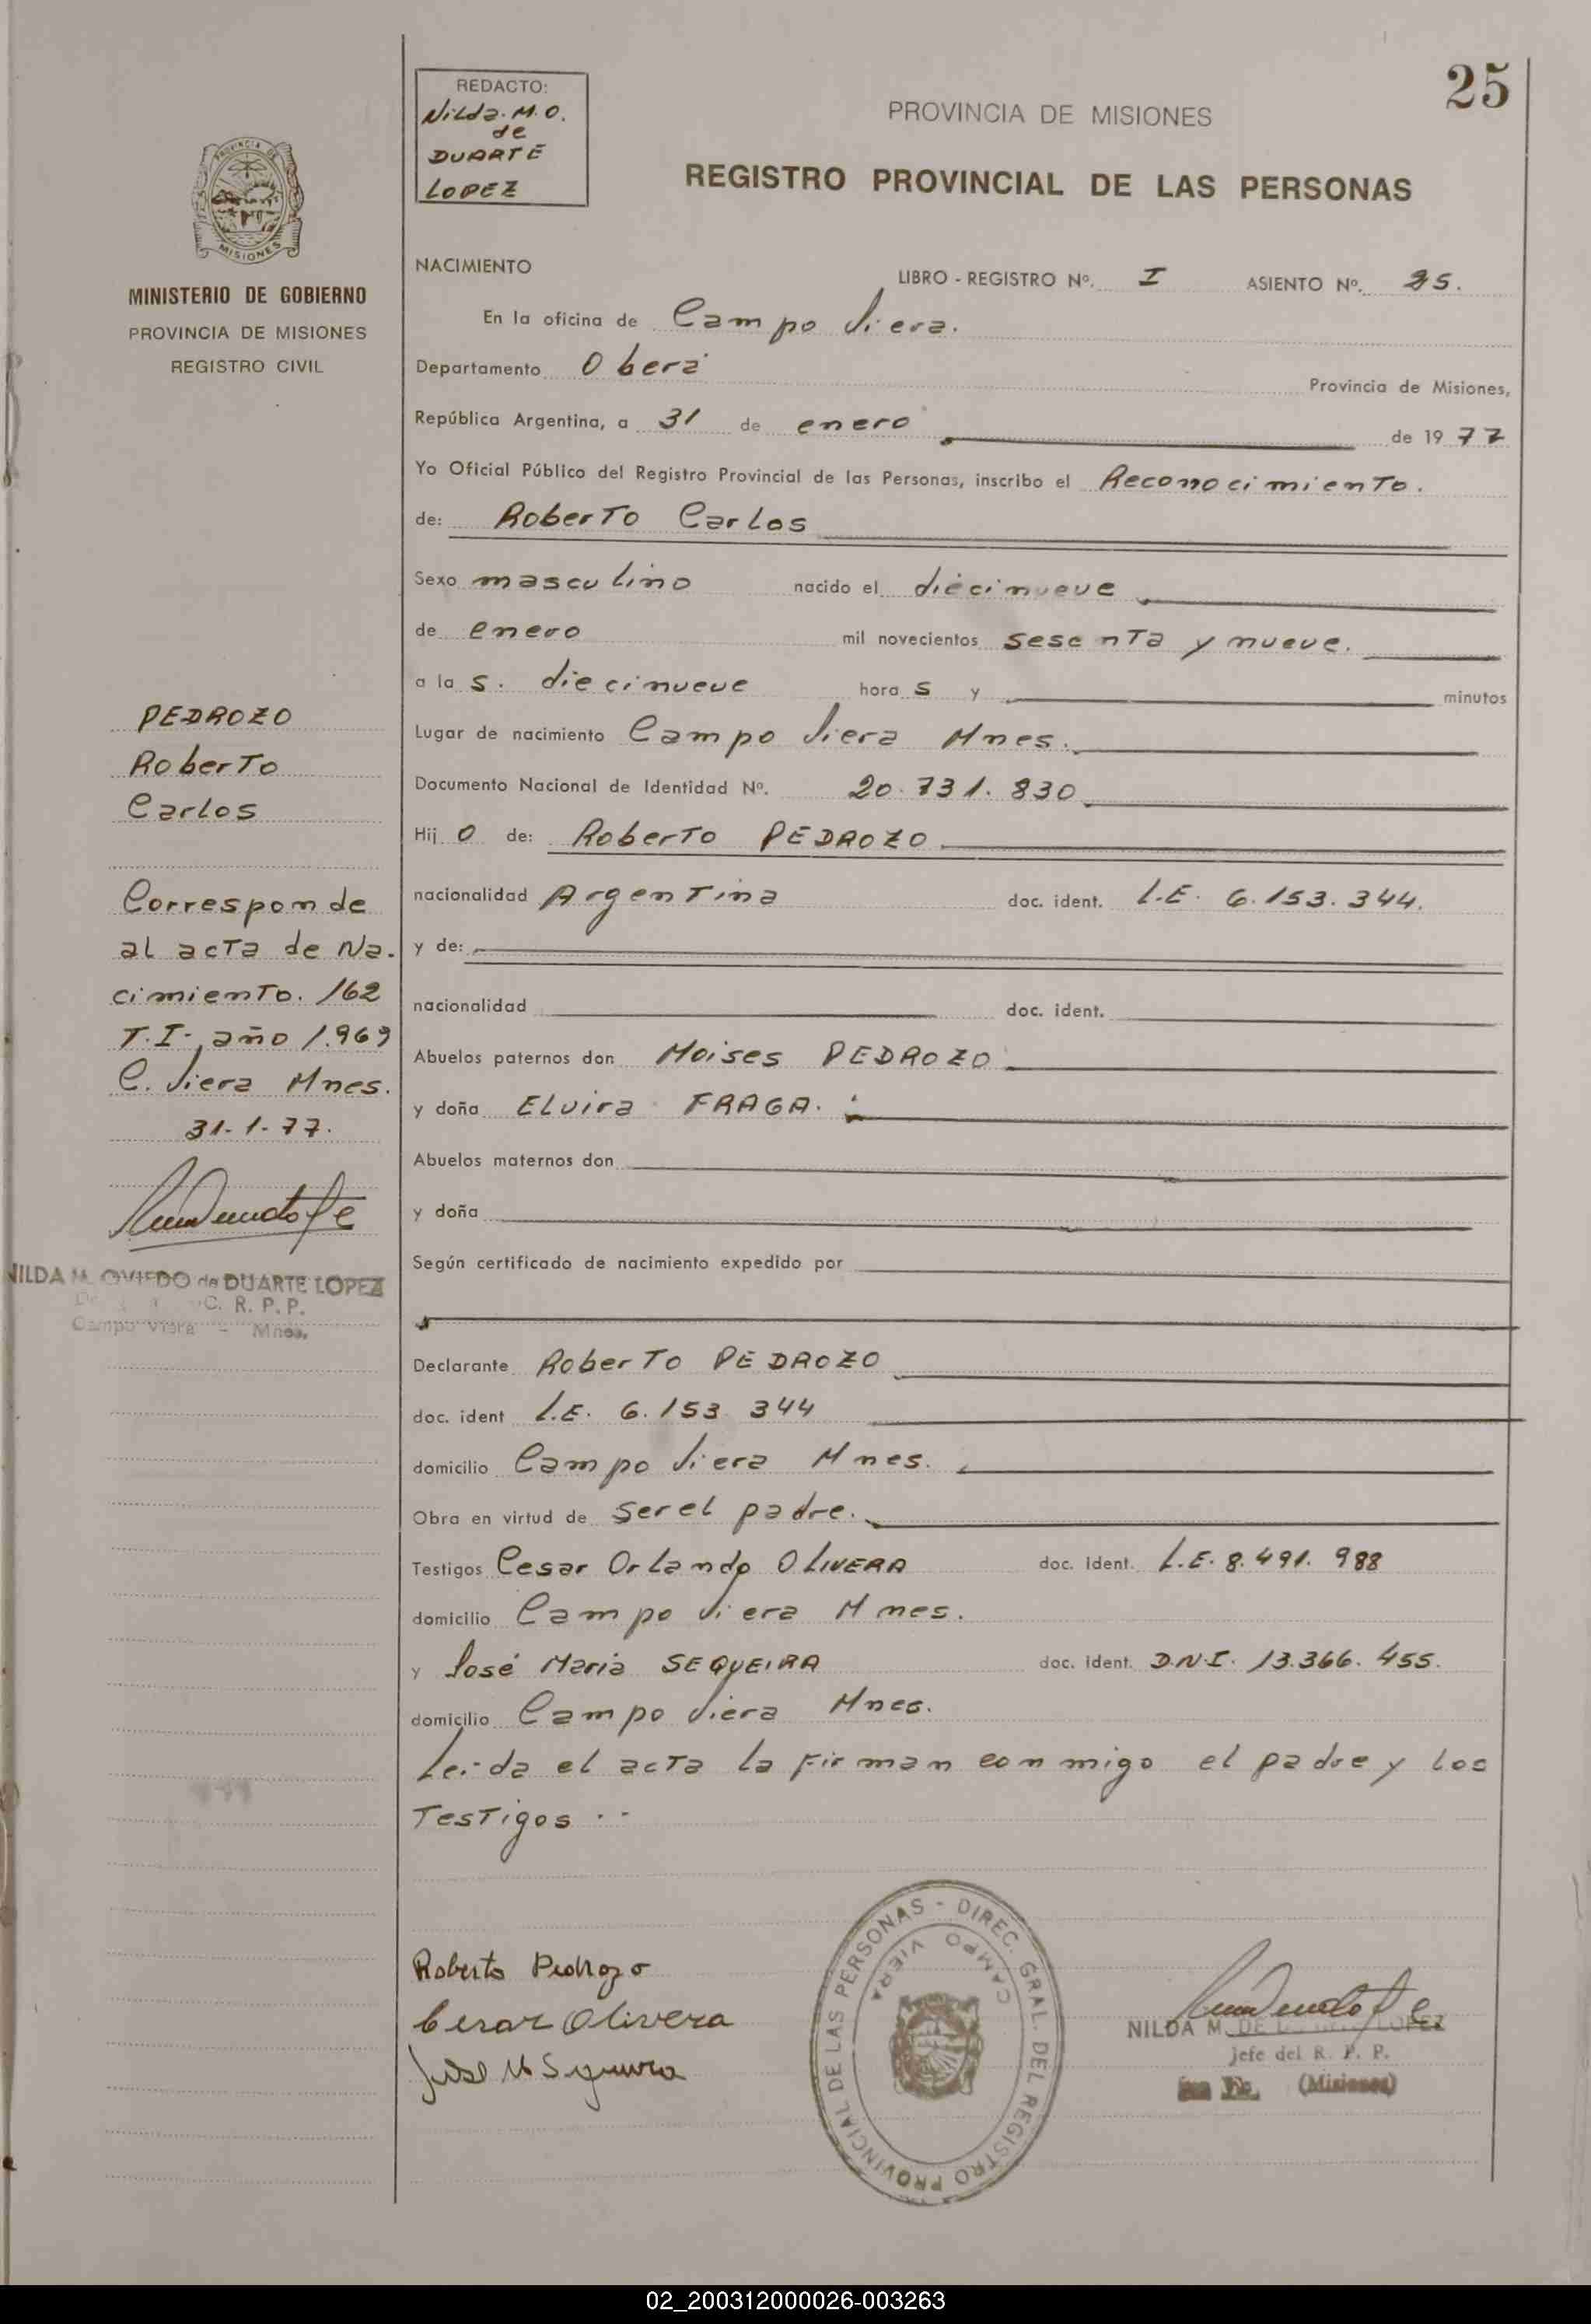 25
REDACTO:
Nilda. M. O.
de
DUARTE
LOPEZ
PROVINCIA DE MISIONES
REGISTRO PROVINCIAL DE LAS PERSONAS
PROVINCIA DE
MISIONES
MINISTERIO DE GOBIERNO
PROVINCIA DE MISIONES
REGISTRO CIVIL
NACIMIENTO
LIBRO - REGISTRO Nº. I ASIENTO Nº. 25.
En la oficina de Campo Viera.
Departamento Oberá Provincia de Misiones,
República Argentina, a 31 de enero de 1977
Yo Oficial Público del Registro Provincial de las Personas, inscribo el Reconocimiento.
de: Roberto Carlos
Sexo masculino nacido el diecinueve
de enero mil novecientos sesenta y nueve.
a la s. diecinueve hora s y minutos
Lugar de nacimiento Campo Viera Mnes.
Documento Nacional de Identidad Nº. 20.731.830
Hij o de: Roberto PEDROZO
nacionalidad Argentina doc. ident. L.E. 6.153.344.
y de:
nacionalidad doc. ident.
Abuelos paternos don Moises PEDROZO
y doña Elvira FRAGA.
Abuelos maternos don
y doña
Según certificado de nacimiento expedido por
Declarante Roberto PEDROZO
doc. ident L.E. 6.153.344
domicilio Campo Viera Mnes.
Obra en virtud de ser el padre.
Testigos Cesar Orlando OLIVERA doc. ident. L.E. 8.491.988
domicilio Campo Viera Mnes.
y José Maria SEQUEIRA doc. ident. D.N.I. 13.366.455.
domicilio Campo Viera Mnes.
Leida el acta la firman conmigo el padre y los
Testigos..
PEDROZO
Roberto
Carlos
Corresponde
al acta de Na.
cimiento. 162
T.I. año 1.969
C. Viera Mnes.
31-1-77.
NILDA M. OVIEDO de DUARTE LOPEZ
C. R. P. P.
Campo Viera - Mnes.
Roberto Pedrozo
Cesar Olivera
José M Sequeira
DIREC. GRAL. DEL REGISTRO PROVINCIAL DE LAS PERSONAS -
CAMPO VIERA
NILDA M. DE LOPEZ
Jefe del R. P. P.
(Misiones)
02_200312000026-003263